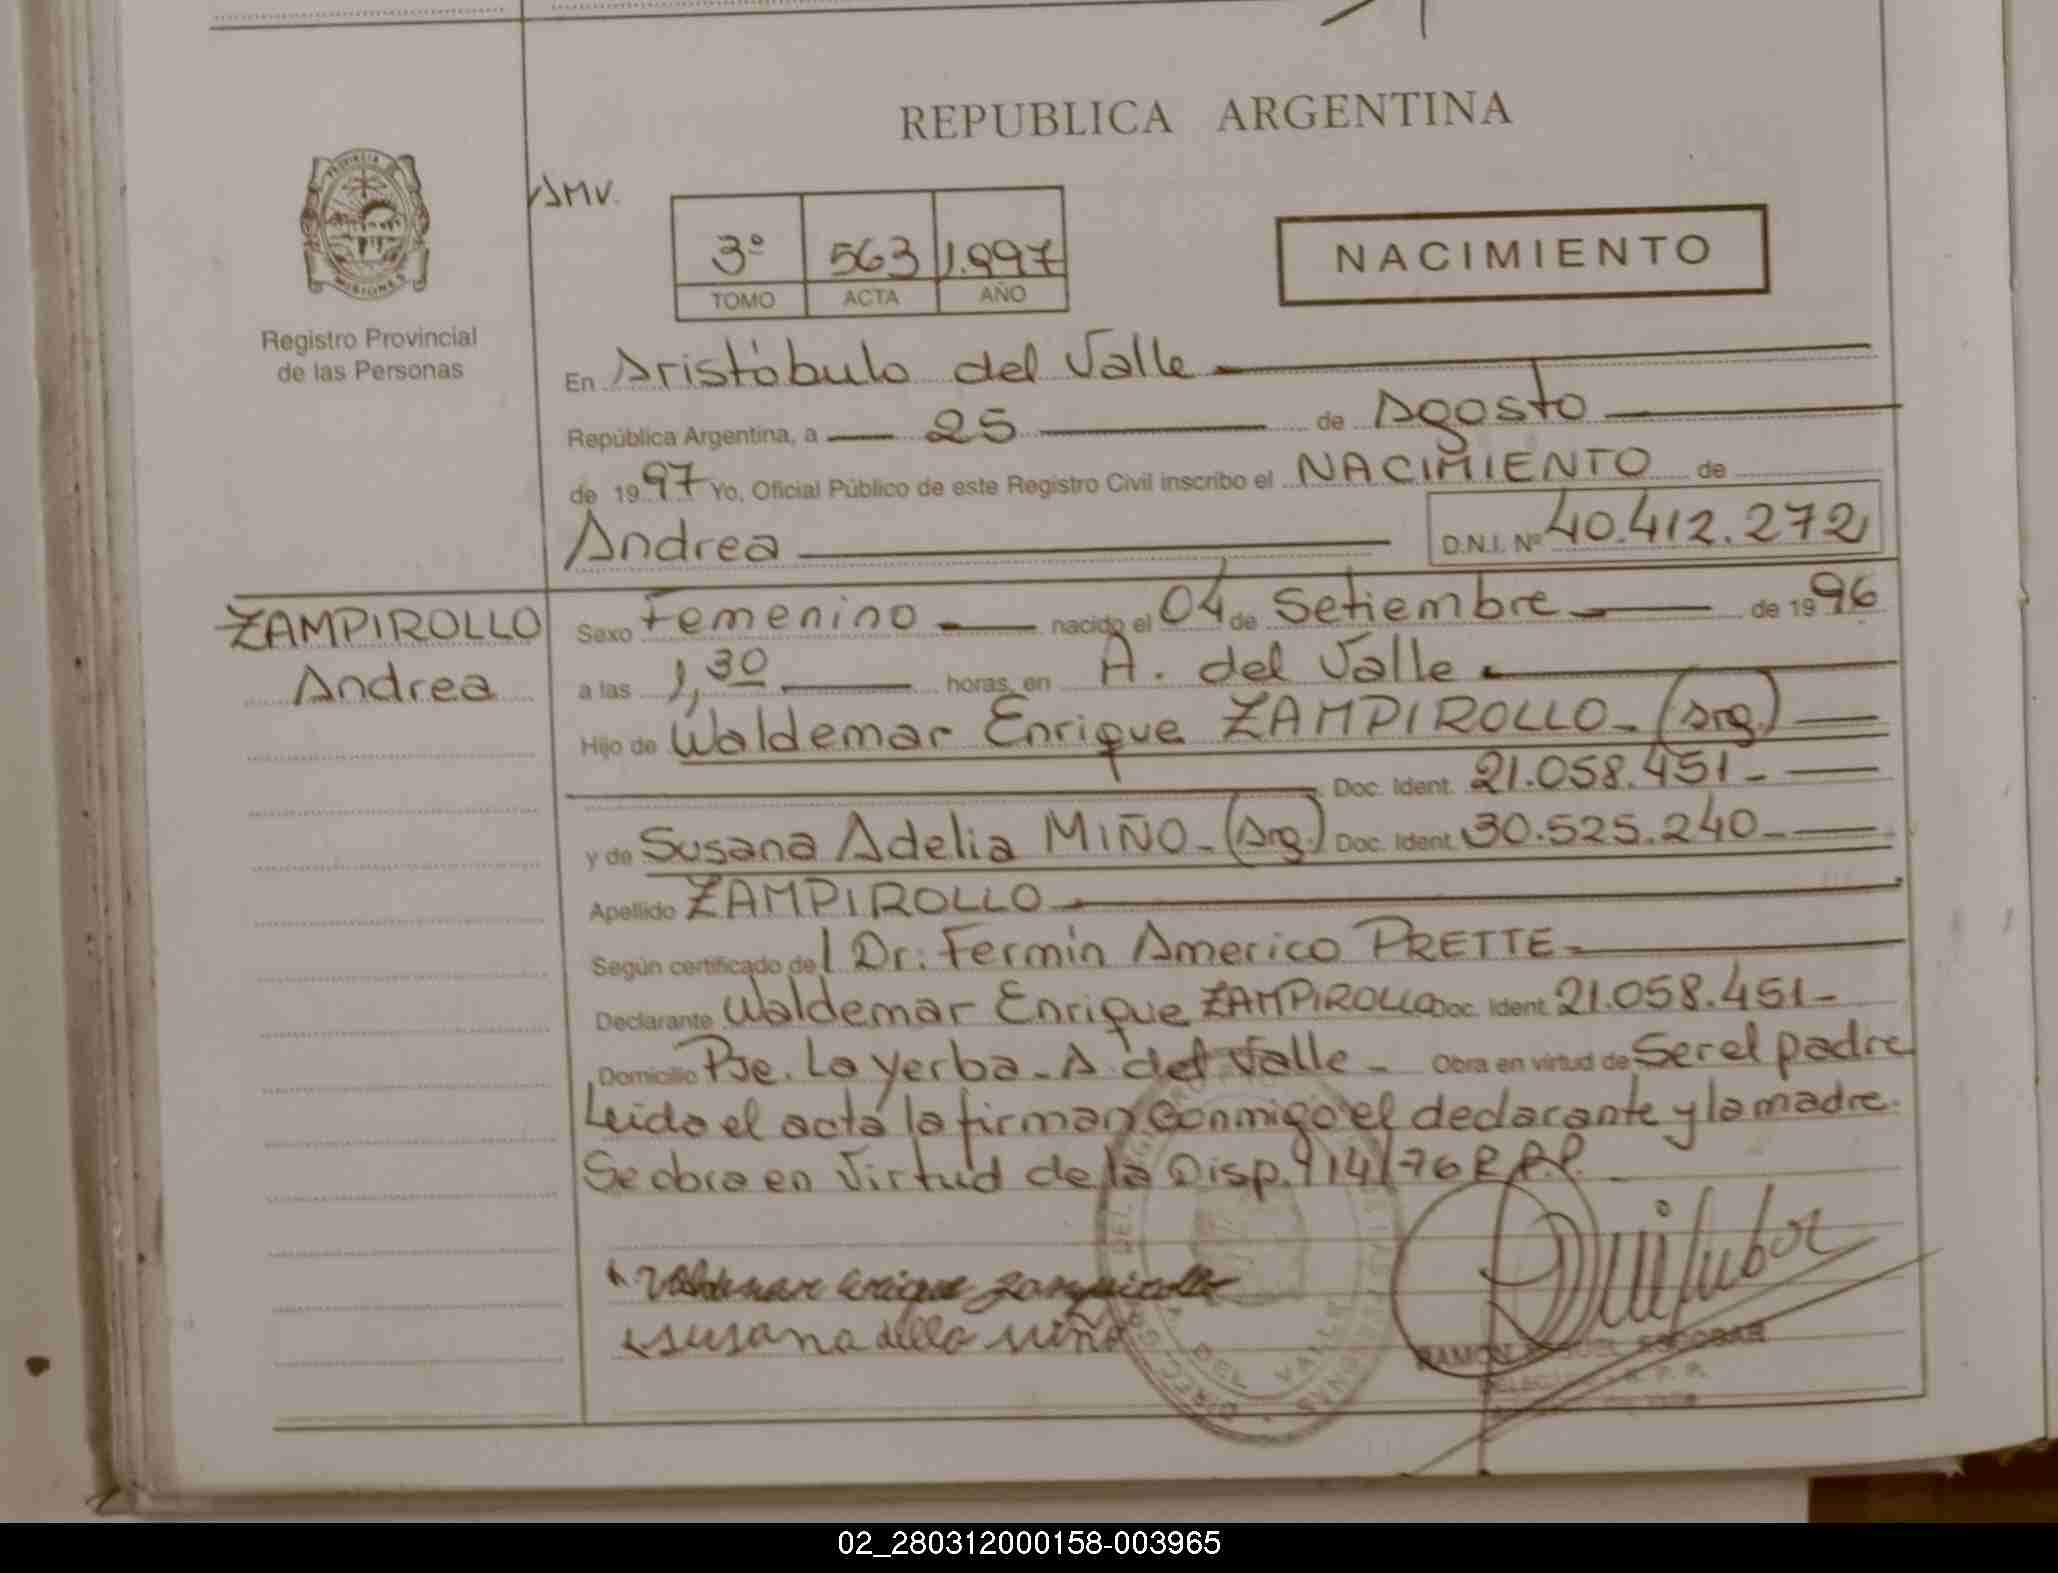 REPUBLICA ARGENTINA
PROVINCIA DE MISIONES
Registro Provincial
de las Personas
AMV.
3º 563 1.997
TOMO ACTA AÑO
NACIMIENTO
En Aristóbulo del Valle
República Argentina, a 25 de Agosto
de 1997 Yo, Oficial Público de este Registro Civil inscribo el NACIMIENTO de
Andrea D.N.I. Nº 40.412.272
ZAMPIROLLO
Andrea
Sexo Femenino nacido el 04 de Setiembre de 1996
a las 1,30 horas, en A. del Valle
Hijo de Waldemar Enrique ZAMPIROLLO- (Arg.)
Doc. Ident. 21.058.451-
y de Susana Adelia MIÑO- (Arg.) Doc. Ident. 30.525.240-
Apellido ZAMPIROLLO
Según certificado del Dr: Fermín Americo PRETTE
Declarante Waldemar Enrique ZAMPIROLLO Doc. Ident. 21.058.451-
Domicilio Pje. La Yerba- A. del Valle- Obra en virtud de Ser el padre
Leida el acta la firman conmigo el declarante y la madre.
Se obra en Virtud de la Disp. 914/76 R.P.P.
Waldemar Enrique Zampirollo
susana delia miño
DEL VALLE
02_280312000158-003965